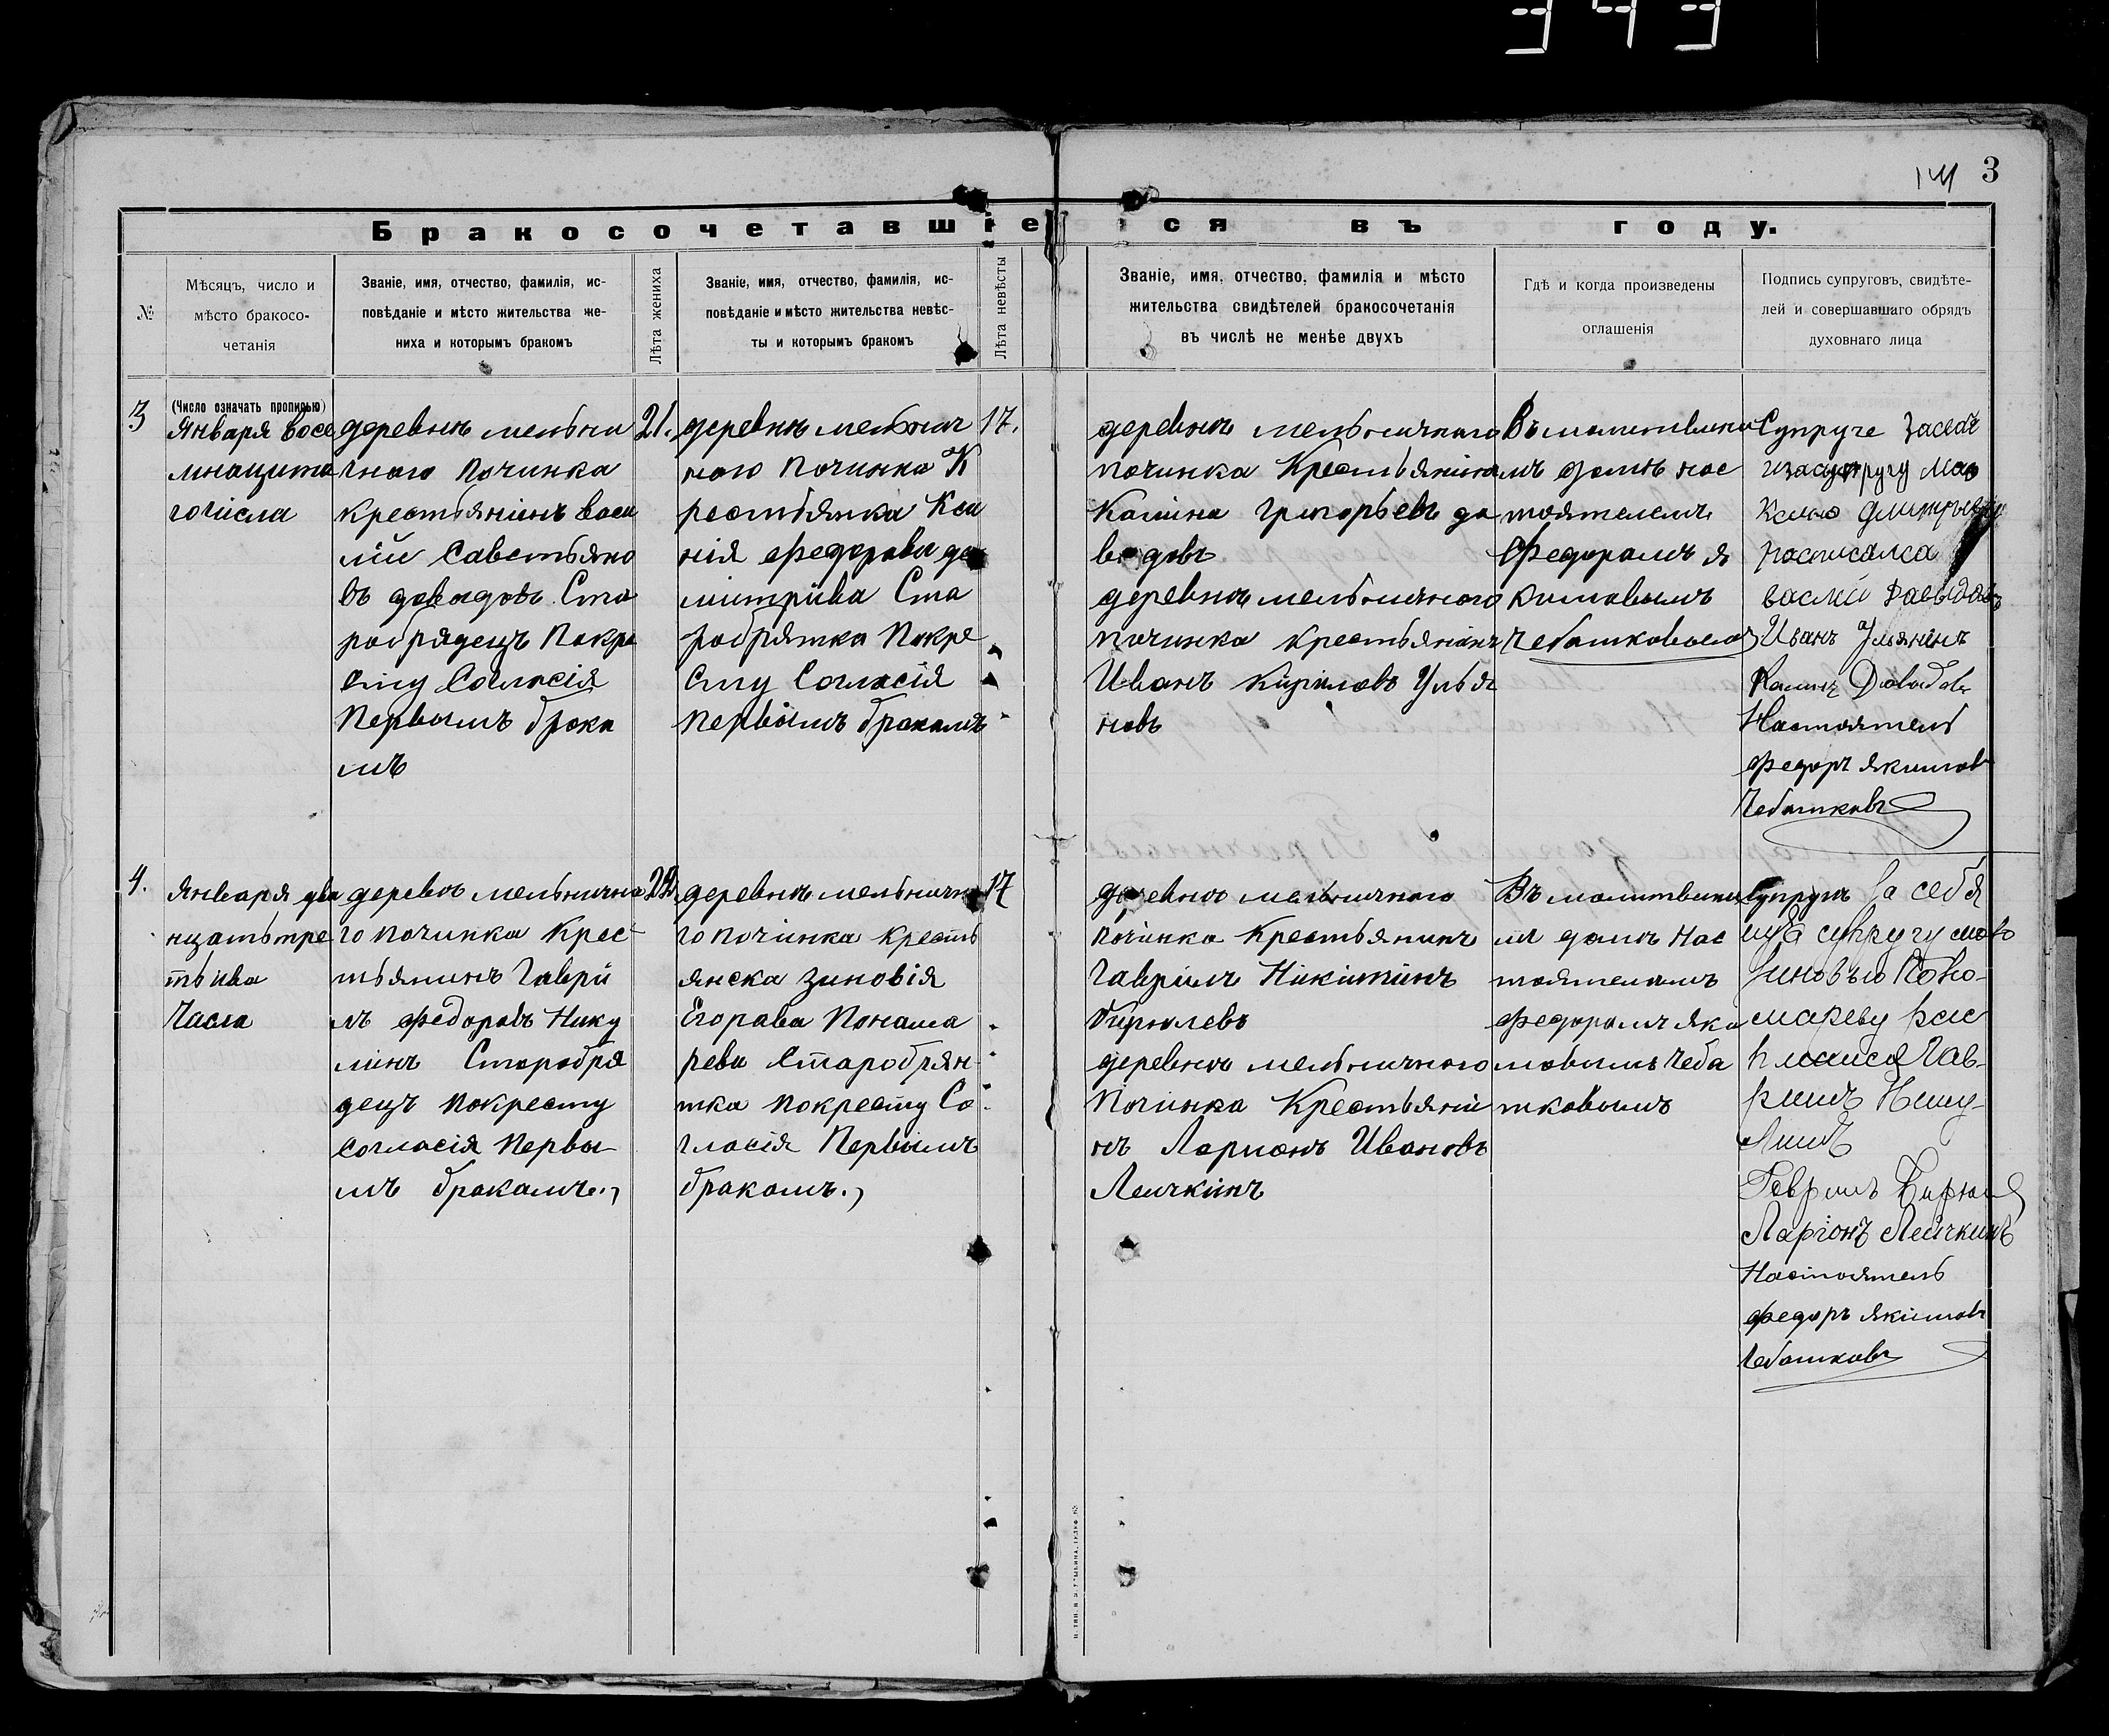 343
3
Бракосочетавшіеся въ году.
№
Мѣсяцъ, число и
мѣсто бракосо-
четанія
Званіе, имя, отчество, фамилія, ис-
повѣданіе и мѣсто жительства же-
ниха и которымъ бракомъ
Лѣта жениха
Званіе, имя, отчество, фамилія, ис-
повѣданіе и мѣсто жительства невѣс-
ты и которымъ бракомъ
Лѣта невѣсты
Званіе, имя, отчество, фамилія и мѣсто
жительства свидѣтелей бракосочетанія
въ числѣ не менѣе двухъ
Гдѣ и когда произведены
оглашенія
Подпись супруговъ, свидѣте-
лей и совершавшаго обрядъ
духовнаго лица
3
(Число означать прописью)
Января восе
мнацата
го числа
деревнѣ мельни
чнаго Починка
крестьянинъ Васи
лій Савѣстьяно
въ давыдовъ Ста
робрядецъ Покре
сту Согласія
Первымъ брака
мъ
21.
деревнѣ мельнич
ного Починка К
рестьянка Ксе
нія Федорава де
митріва Ста
робрятка Покре
сту Согласія
Первымъ бракамъ
17.
деревнѣ мельничнаго
починка Крестьянина
Калина Григорьевъ да
выдовъ
деревнѣ мельничного
починка крестьянинъ
Иванъ Кириловъ Улья
новъ
Въ молитвено
мъ домѣ нас
тоятелемъ
Федорамъ я
кимовымъ
Чебатковымъ
Супруге за себѧ
и за супругу мою
Димитрыеву
росписалса
Василй Давыдовъ
Иванъ Ульянінъ
Калинъ Довыдовъ
Настоятель
Федоръ якимовъ
Чебатковъ
4.
Января два
нцать тре
тьива
Числа
деревнѣ мельнична
го починка Крес
тьянинъ Гаври
лъ Федоровъ Нику
линъ Старобря
децъ покресту
согласія Первы
мъ бракамъ.,
22.
деревнѣ мельнична
го починка кресть
янска Зиновія
Егорава Понама
рева Старобрян-
тка покресту Со-
гласія Первымъ
бракомъ.,
17
деревнѣ мельничного
починка Крестьянинъ
Гаврилъ Никитинъ
Бирюлевъ
деревнѣ мельничного
Починка Крестьяни
нъ Ларионъ Ивановъ
Леичкинъ
Въ молитвено
мъ домѣ Нас
тоятеламъ
Федорамъ яки
мовымъ Чеба
тковымъ
Супругъ за себя
и за супругу мою
Зиновью Поно-
мареву рас
писался Гав-
рилъ Нику-
линъ
Гаврилъ
Ларіонъ Леичкинъ
Настоятель
Федоръ якимовъ
Чебатковъ